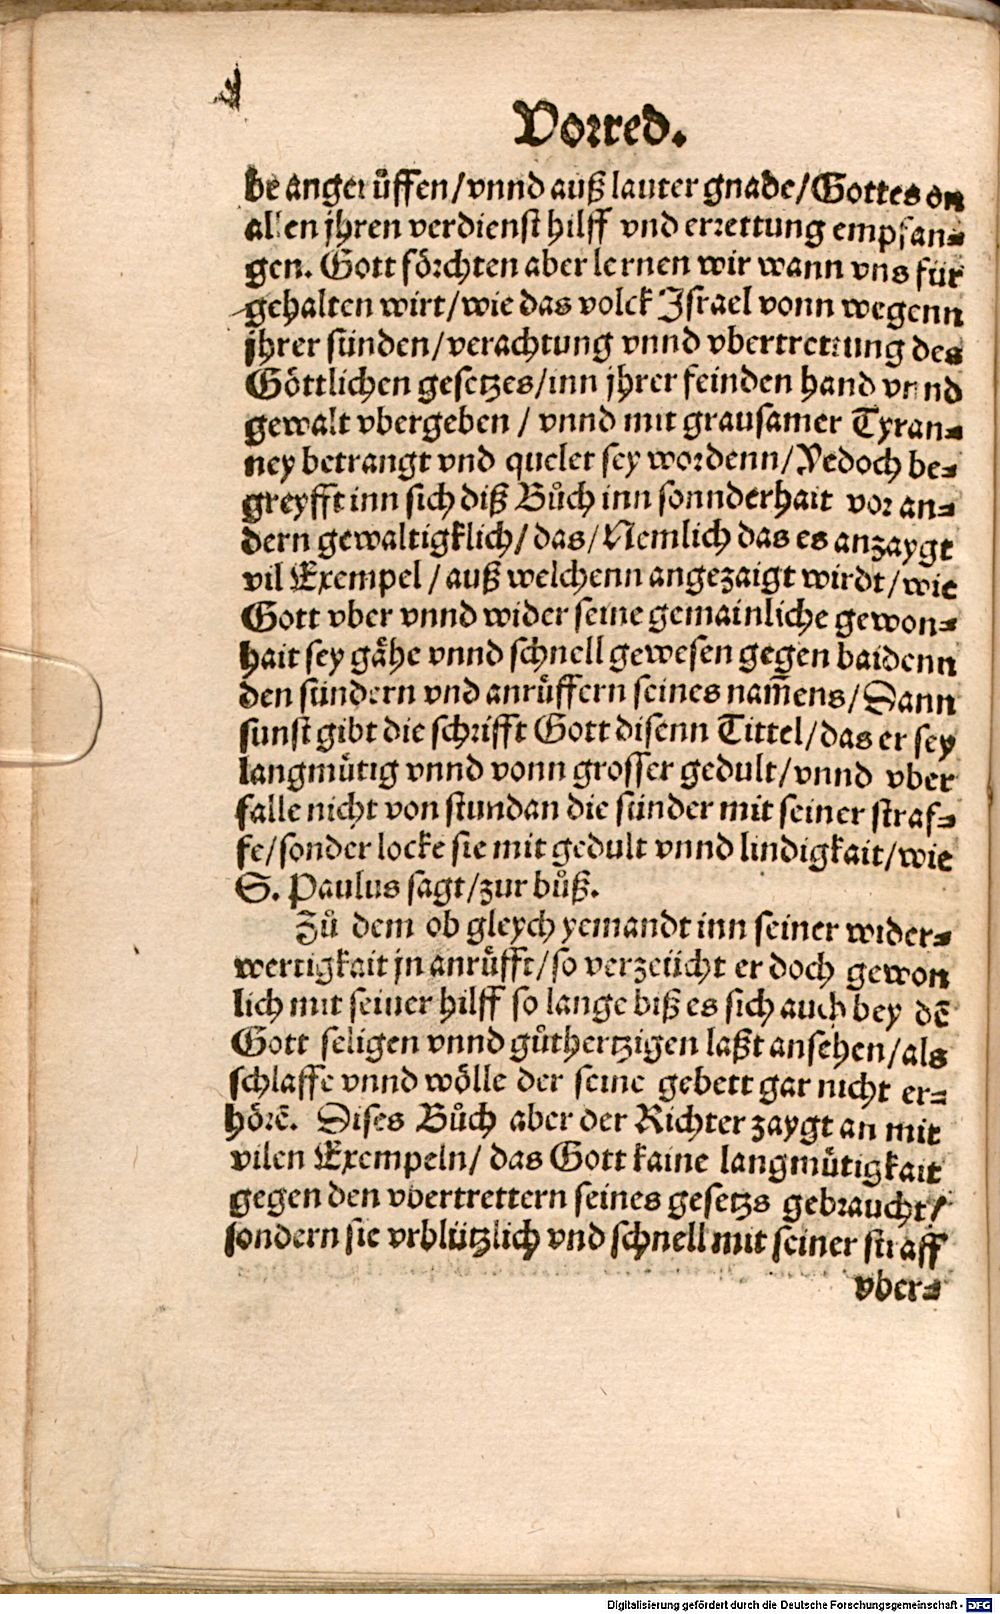 Vorred.
be angerůffen/vnnd auß lauter gnade/Gottes on
allen jhren verdienst hilff vnd errettung empfan-
gen. Gott förchten aber lernen wir wann vns für
gehalten wirt/wie das volck Israel vonn wegenn
jhrer sünden/verachtung vnnd vbertrettung des
Göttlichen gesetzes/inn jhrer feinden hand vnnd
gewalt vbergeben / vnnd mit grausamer Tyran-
ney betrangt vnd quelet sey wordenn/Yedoch be-
greyfft inn sich diß Bůch inn sonnderhait vor an-
dern gewaltigklich/das/Nemlich das es anzaygt
vil Exempel/auß welchenn angezaigt wirdt/wie
Gott vber vnnd wider seine gemainliche gewon-
hait sey gähe vnnd schnell gewesen gegen baidenn
den sündern vnd anrůffern seines nam̃ens/Dann
sunst gibt die schrifft Gott disenn Tittel/das er sey
langmütig vnnd vonn grosser gedult/vnnd vber
falle nicht von stundan die sünder mit seiner straf-
fe/sonder locke sie mit gedult vnnd lindigkait/wie
S. Paulus sagt/zur bůß.
Zů dem ob gleych yemandt inn seiner wider-
wertigkait jn anrůfft/so verzeücht er doch gewon
lich mit seiner hilff so lange biß es sich auch bey dē
Gott seligen vnnd gůthertzigen laßt ansehen/als
schlaffe vnnd wölle der seine gebett gar nicht er-
hörē. Dises Bůch aber der Richter zaygt an mit
vilen Exempeln/das Gott kaine langmütigkait
gegen den vbertrettern seines gesetzs gebraucht/
sondern sie vrblützlich vnd schnell mit seiner straff
vber-
Digitalisierung gefördert durch die Deutsche Forschungsgemeinschaft - DFG